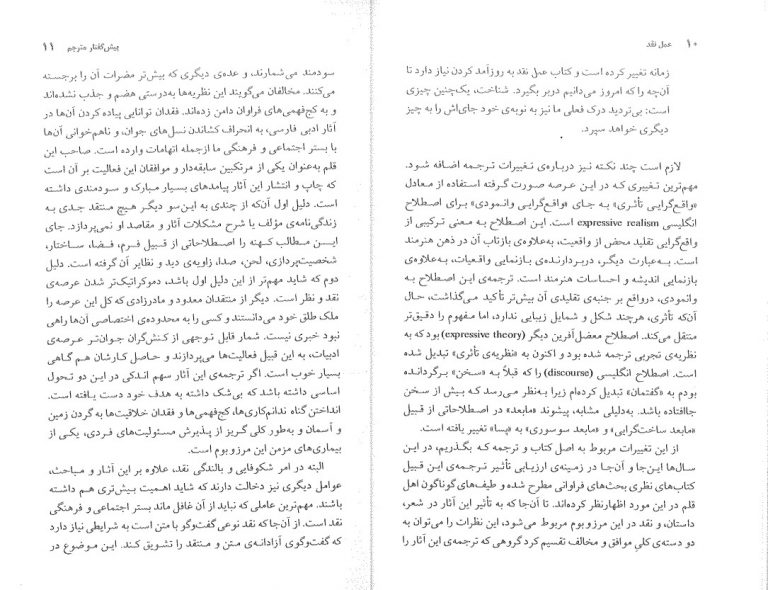 ۱۰ عمل نقد
زمانه تغییر کرده است و کتاب عمل نقد به روزآمد کردن نیاز دارد تا
آن‌چه را که امروز می‌دانیم دربر بگیرد. شناخت، یک‌چنین چیزی
است: بی‌تردید درک فعلی ما نیز به نوبه‌ی خود جای‌اش را به چیز
دیگری خواهد سپرد.
لازم است چند نکته نیز درباره‌ی تغییرات ترجمه اضافه شود.
مهم‌ترین تغییری که در این عرصه صورت گرفته استفاده از معادل
«واقع‌گرایی تأثری» به جای «واقع‌گرایی وانمودی» برای اصطلاح
انگلیسی expressive realism است. این اصطلاح به معنی ترکیبی از
واقع‌گرایی تقلید محض از واقعیت، به‌علاوه‌ی بازتاب آن در ذهن هنرمند
است. به‌عبارت دیگر، دربردارنده‌ی بازنمایی واقعیات، به‌علاوه‌ی
بازنمایی اندیشه و احساسات هنرمند است. ترجمه‌ی این اصطلاح به
وانمودی، درواقع بر جنبه‌ی تقلیدی آن بیش‌تر تأکید می‌گذاشت، حال
آن‌که تأثری، هرچند شکل و شمایل زیبایی ندارد، اما مفهوم را دقیق‌تر
منتقل می‌کند. اصطلاح معضل‌آفرین دیگر (expressive theory) بود که به
نظریه‌ی تجربی ترجمه شده بود و اکنون به «نظریه‌ی تأثری» تبدیل شده
است. اصطلاح انگلیسی (discourse) را که قبلاً به «سخن» برگردانده
بودم به «گفتمان» تبدیل کرده‌ام زیرا به‌نظر می‌رسد که بیش از سخن
جاافتاده باشد. به‌دلیلی مشابه، پیشوند «مابعد» در اصطلاحاتی از قبیل
«مابعد ساخت‌گرایی» و «مابعد سوسوری» به «پسا» تغییر یافته است.
از این تغییرات مربوط به اصل کتاب و ترجمه که بگذریم، در این
سال‌ها این‌جا و آن‌جا در زمینه‌ی ارزیابی تأثیر ترجمه‌ی این قبیل
کتاب‌های نظری بحث‌های فراوانی مطرح شده و طیف‌های گوناگون اهل
قلم در این مورد اظهارنظر کرده‌اند. تا آن‌جا که به تأثیر این آثار در شعر،
داستان، و نقد در این مرزوبوم مربوط می‌شود، این نظرات را می‌توان به
دو دسته‌ی کلی موافق و مخالف تقسیم کرد گروهی که ترجمه‌ی این آثار را
پیش‌گفتار مترجم ۱۱
سودمند می‌شمارند، و عده‌ی دیگری که بیش‌تر مضرات آن را برجسته
می‌کنند. مخالفان می‌گویند این نظریه‌ها به‌درستی هضم و جذب نشده‌اند
و به کج‌فهمی‌های فراوان دامن زده‌اند. فقدان توانایی پیاده کردن آن‌ها در
آثار ادبی فارسی، به انحراف کشاندن نسل‌های جوان، و ناهم‌خوانی آن‌ها
با بستر اجتماعی و فرهنگی ما ازجمله اتهامات وارده است. صاحب این
قلم به‌عنوان یکی از مرتکبین سابقه‌دار و موافقان این فعالیت بر آن است
که چاپ و انتشار این آثار پیامدهای بسیار مبارک و سودمندی داشته
است. دلیل اول آن‌که از چندی به این‌سو دیگر هیچ منتقد جدی به
زندگی‌نامه‌ی مؤلف یا شرح مشکلات آثار و مقاصد او نمی‌پردازد. جای
این مطالب کهنه را اصطلاحاتی از قبیل فرم، فضا، ساختار،
شخصیت‌پردازی، لحن، صدا، زاویه‌ی دید و نظایر آن گرفته است. دلیل
دوم که شاید مهم‌تر از این دلیل اول باشد، دموکراتیک‌تر شدن عرصه‌ی
نقد و نظر است. دیگر از منتقدان معدود و مادرزادی که کل این عرصه را
ملک طلق خود می‌دانستند و کسی را به محدوده‌ی اختصاصی آن‌ها راهی
نبود خبری نیست. شمار قابل توجهی از کنش‌گران جوان‌تر عرصه‌ی
ادبیات، به این قبیل فعالیت‌ها می‌پردازند و حاصل کارشان هم گاهی
بسیار خوب است. اگر ترجمه‌ی این آثار سهم اندکی در این دو تحول
اساسی داشته باشد که بی‌شک داشته به هدف خود دست یافته است.
انداختن گناه ندانم‌کاری‌ها، کج‌فهمی‌ها و فقدان خلاقیت‌ها به گردن زمین
و آسمان و به‌طور کلی گریز از پذیرش مسئولیت‌های فردی، یکی از
بیماری‌های مزمن این مرزوبوم است.
البته در امر شکوفایی و بالندگی نقد، علاوه بر این آثار و مباحث،
عوامل دیگری نیز دخالت دارند که شاید اهمیت بیش‌تری هم داشته
باشند. مهم‌ترین عاملی که نباید از آن غافل ماند بستر اجتماعی و فرهنگی
نقد است. از آن‌جا که نقد نوعی گفت‌وگو با متن است به شرایطی نیاز دارد
که گفت‌وگوی آزادانه‌ی متن و منتقد را تشویق کند. این موضوع در